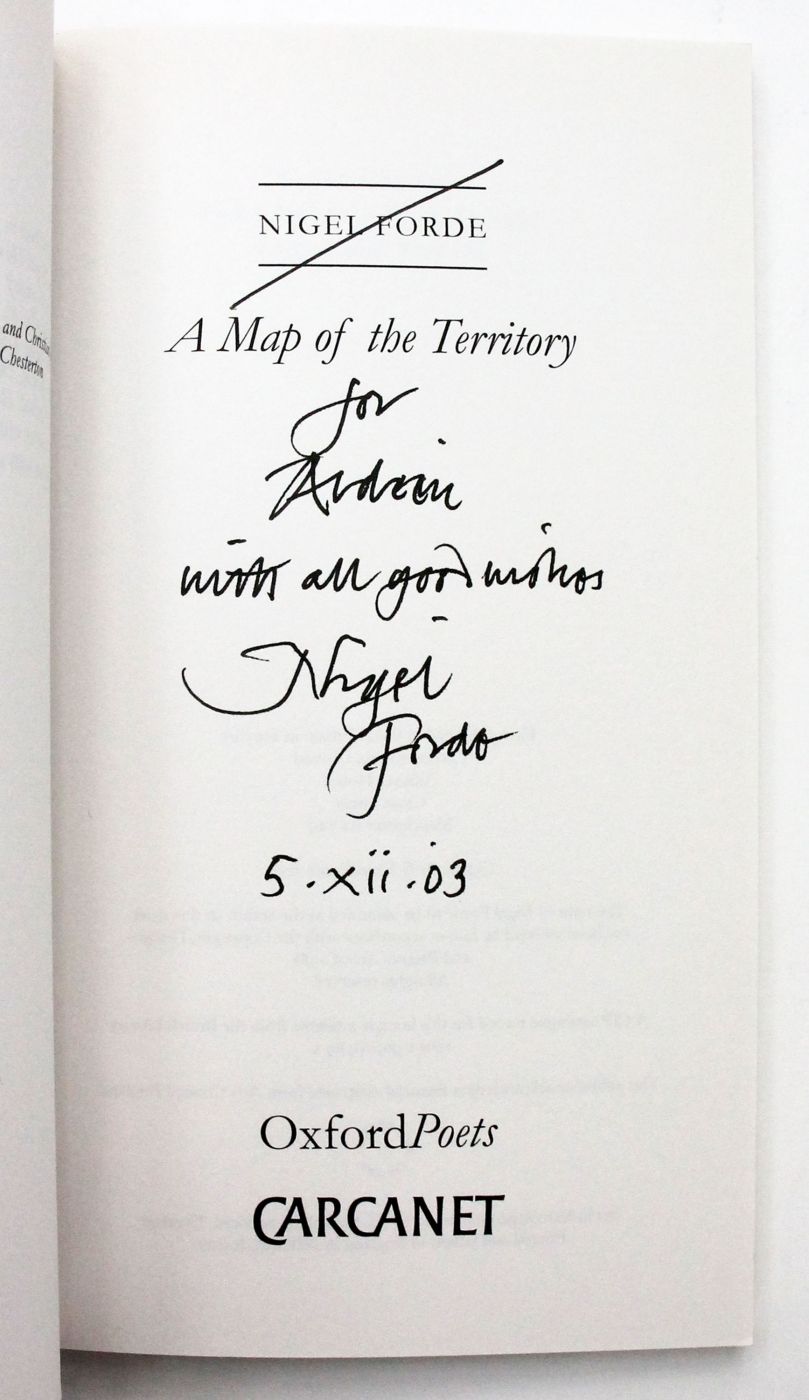 and
Chesterton
NIGEL FORDE
A Map of the Territory
for
with all good wishes
Nigel
Forde
5.xii.03
OxfordPoets
CARCANET